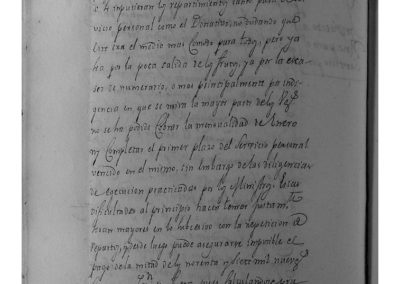 è hicieron los repartimientos tanto para el
vicio personal como el Donativo, no dudando que
este era el medio mas Comodo para todos, pero ya
ha por la poca salida de los frutos, ya por la esca
sez de numerario, o mas principalmente por indi
gencia en que se mira la mayor parte de los
no se ha podido Cobrar la mensualidad de Enero
ny Completar el primer plazo del Servicio personal
vencido en el mismo, sin embargo de las diligencias
de execucion practicadas por los Ministros. Estas
dificultades al principio hacen temer justam.te
sean mayores en lo subcesivo con la repeticion de
reparto, y desde luego puede asegurarse imposible el
pago de la mitad de los noventa y siete mil nuevez